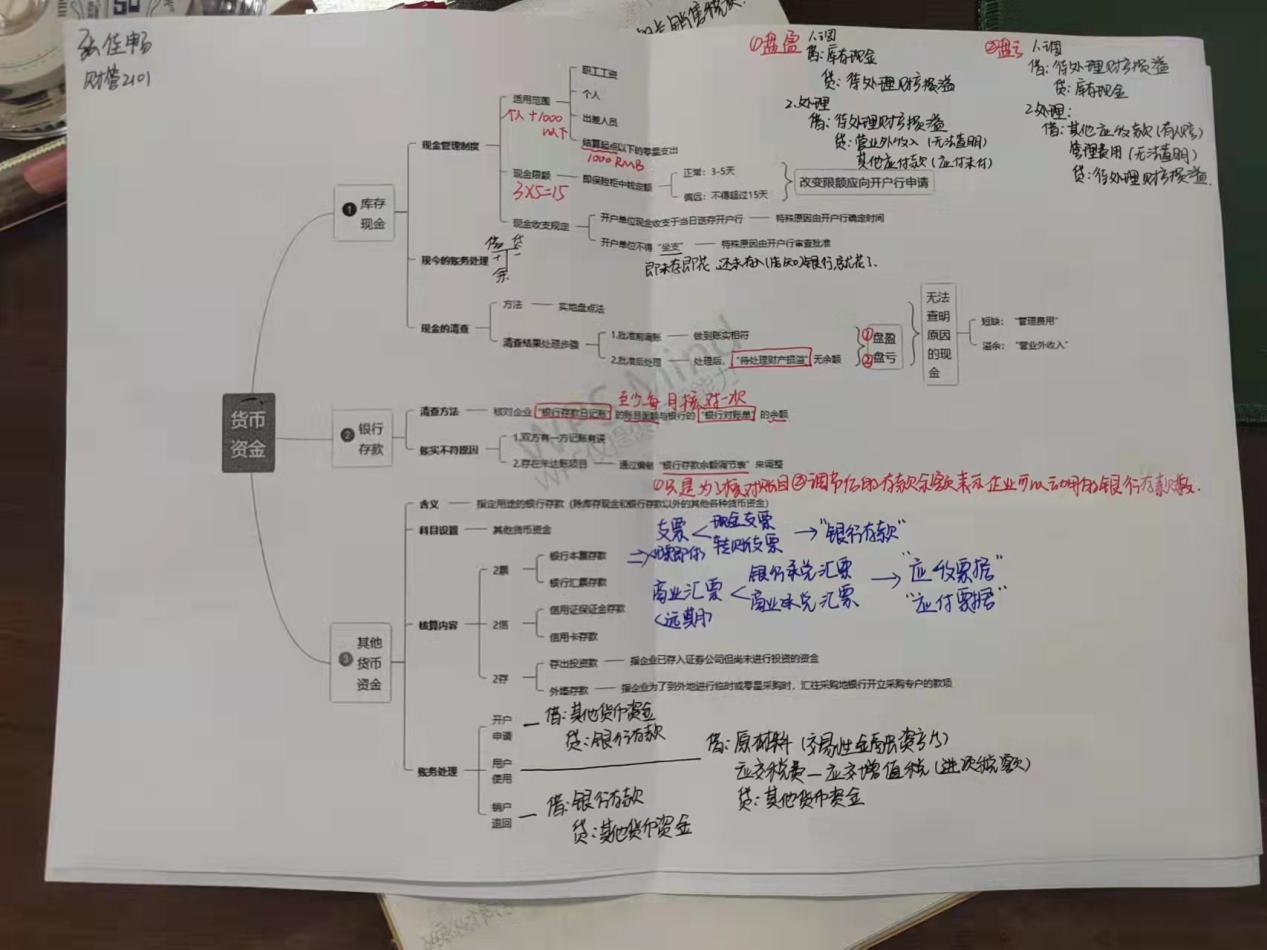 张佳畅
财管2101
50
①盘盈 1.调
借:库存现金
贷:待处理财产损溢
2.处理
借:待处理财产损溢
贷:营业外收入(无法查明)
其他应付款(应付未付)
②盘亏 1.调
借:待处理财产损溢
贷:库存现金
2处理:
借:其他应收款(有人赔)
管理费用(无法查明)
贷:待处理财产损溢.
货币
资金
1 库存
现金
现金管理制度
适用范围
个人+1000
以下
职工工资
个人
出差人员
结算起点以下的零星支出
1000 RMB
现金限额
3×5=15
即保险柜中核定额
正常:3-5天
偏远:不得超过15天
改变限额应向开户行申请
现金收支规定
开户单位现金收支于当日送存开户行 — 特殊原因由开户行确定时间
开户单位不得“坐支” — 特殊原因由开户行审查批准
即未存即花,还未存入银行,就花了.
现今的账务处理
借 贷
+ -
余
现金的清查
方法 — 实地盘点法
清查结果处理步骤
1.批准前调账 — 做到账实相符
2.批准后处理 — 处理后,“待处理财产损溢”无余额
①盘盈
②盘亏
无法
查明
原因
的现
金
短缺:“管理费用”
溢余:“营业外收入”
2 银行
存款
至少每月核对一次
清查方法 — 核对企业“银行存款日记账”的账目面额与银行的“银行对账单”的余额
账实不符原因
1.双方有一方记账有误
2.存在未达账项目 — 通过编制“银行存款余额调节表”来调整
①只是为了核对账目②调节后的存款余额表示企业可以动用的银行存款数.
3 其他
货币
资金
含义 — 指定用途的银行存款(除库存现金和银行存款以外的其他各种货币资金)
科目设置 — 其他货币资金
核算内容
2票
银行本票存款
银行汇票存款
2信
信用证保证金存款
信用卡存款
2存
存出投资款 — 指企业已存入证券公司但尚未进行投资的资金
外埠存款 — 指企业为了到外地进行临时或零星采购时,汇往采购地银行开立采购专户的款项
支票 < 现金支票
转账支票 → “银行存款”
商业汇票 < 银行承兑汇票
商业承兑汇票 → “应收票据”
“应付票据”
(远期)
账务处理
开户
申请 — 借:其他货币资金
贷:银行存款
用户
使用 — 借:原材料(交易性金融资产)
应交税费—应交增值税(进项税额)
贷:其他货币资金
销户
退回 — 借:银行存款
贷:其他货币资金
WPS Mind